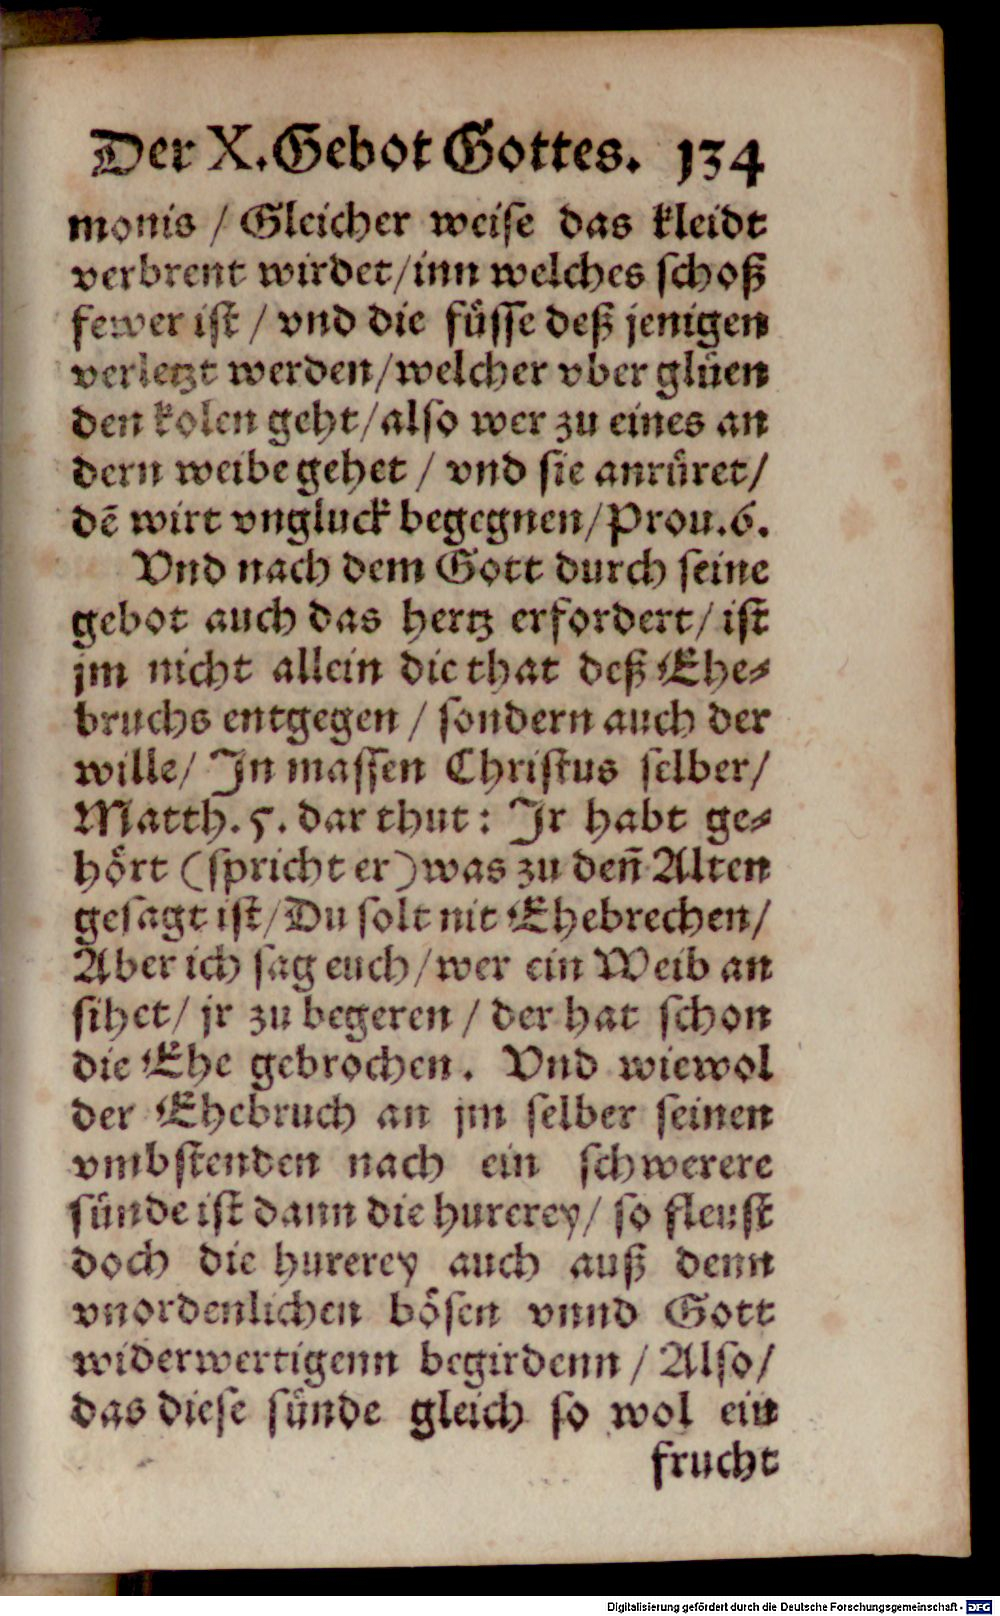 Der X. Gebot Gottes. 134
monis / Gleicher weise das kleidt
verbrent wirdet/inn welches schoß
fewer ist / vnd die füsse deß jenigen
verletzt werden/welcher vber glüen
den kolen geht/also wer zu eines an
dern weibe gehet / vnd sie anrüret/
dē wirt vngluck begegnen/Prou.6.
Vnd nach dem Gott durch seine
gebot auch das hertz erfordert/ ist
jm nicht allein die that deß Ehe-
bruchs entgegen / sondern auch der
wille/ In massen Christus selber/
Matth. 5. dar thut: Ir habt ge-
hört (spricht er) was zu den̄ Alten
gesagt ist/Du solt nit Ehebrechen/
Aber ich sag euch/wer ein Weib an
sihet/ jr zu begeren / der hat schon
die Ehe gebrochen. Vnd wiewol
der Ehebruch an jm selber seinen
vmbstenden nach ein schwerere
sünde ist dann die hurerey/ so fleust
doch die hurerey auch auß denn
vnordenlichen bösen vnnd Gott
widerwertigenn begirdenn / Also/
das diese sünde gleich so wol ein
frucht
Digitalisierung gefördert durch die Deutsche Forschungsgemeinschaft - DFG